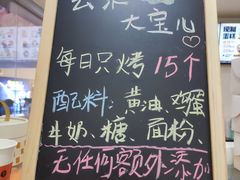 大宝儿
每日只烤15个
配料：黄油、鸡蛋
牛奶、糖、面粉、
无任何额外添加
现制